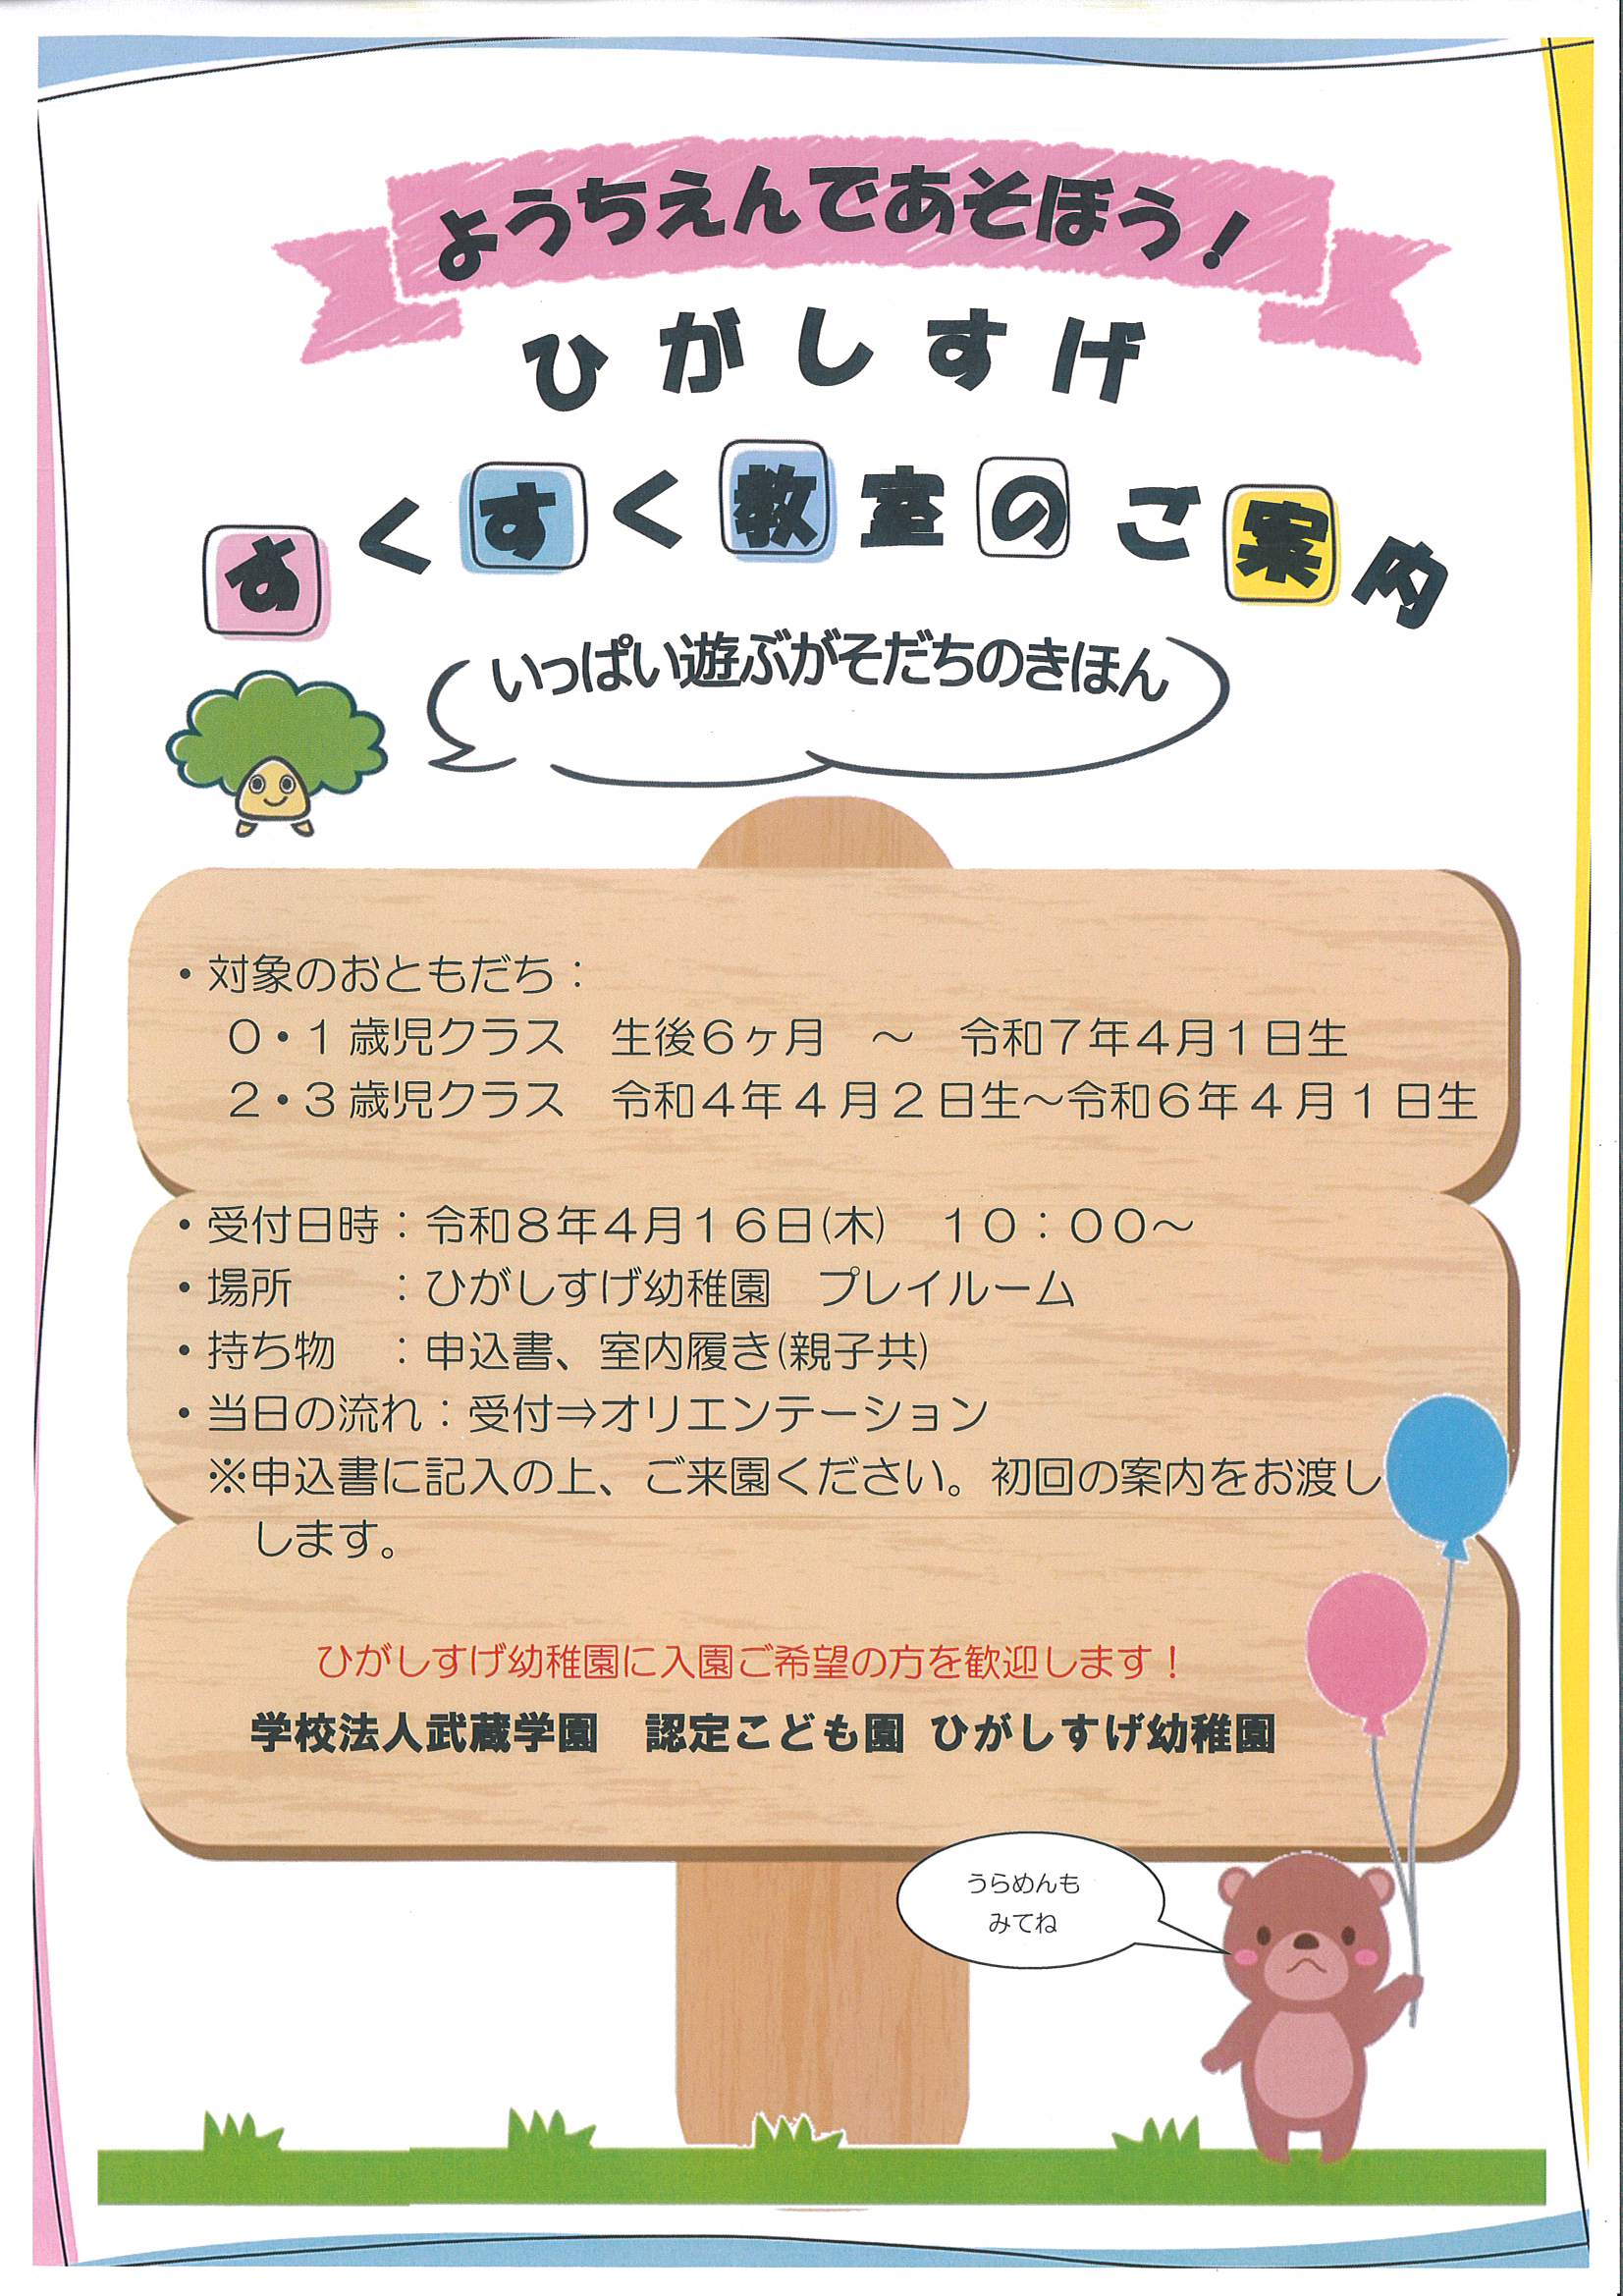 ようちえんであそぼう！
ひがしすげ
すくすく教室のご案内
いっぱい遊ぶがそだちのきほん
・対象のおともだち：
０・１歳児クラス　生後６ヶ月　～　令和７年４月１日生
２・３歳児クラス　令和４年４月２日生～令和６年４月１日生
・受付日時：令和８年４月１６日(木)　１０：００～
・場所　　：ひがしすげ幼稚園　プレイルーム
・持ち物　：申込書、室内履き(親子共)
・当日の流れ：受付⇒オリエンテーション
※申込書に記入の上、ご来園ください。初回の案内をお渡し
します。
ひがしすげ幼稚園に入園ご希望の方を歓迎します！
学校法人武蔵学園　認定こども園 ひがしすげ幼稚園
うらめんも
みてね